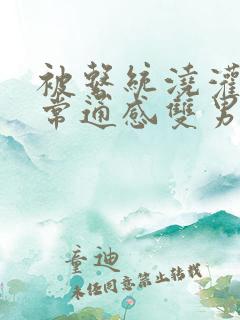 被繫統澆灌
常適感雙男
童迪
未經同意禁止轉載